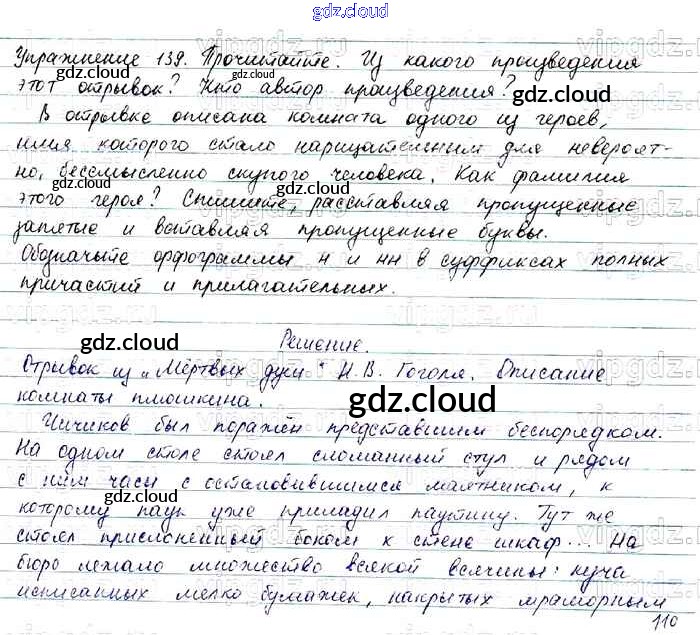 gdz.cloud
Упражнение 139. Прочитайте. Из какого произведения
этот отрывок? Кто автор произведения?
В отрывке описана комната одного из героев,
имя которого стало нарицательным для невероят-
но, бессмысленно скупого человека. Как фамилия
этого героя? Спишите, расставляя пропущенные
запятые и вставляя пропущенные буквы.
Обозначьте орфограммы н и нн в суффиксах полных
причастий и прилагательных.
Решение.
Отрывок из „Мёртвых душ" Н.В. Гоголя. Описание
комнаты плюшкина.
Чичиков был поражён представшим беспорядком.
На одном столе стоял сломанный стул и рядом
с ним часы с остановившимся маятником, к
которому паук уже приладил паутину. Тут же
стоял прислоненный боком к стене шкаф... На
бюро лежало множество всякой всячины: куча
исписанных мелко бумажек, накрытых мраморным
110